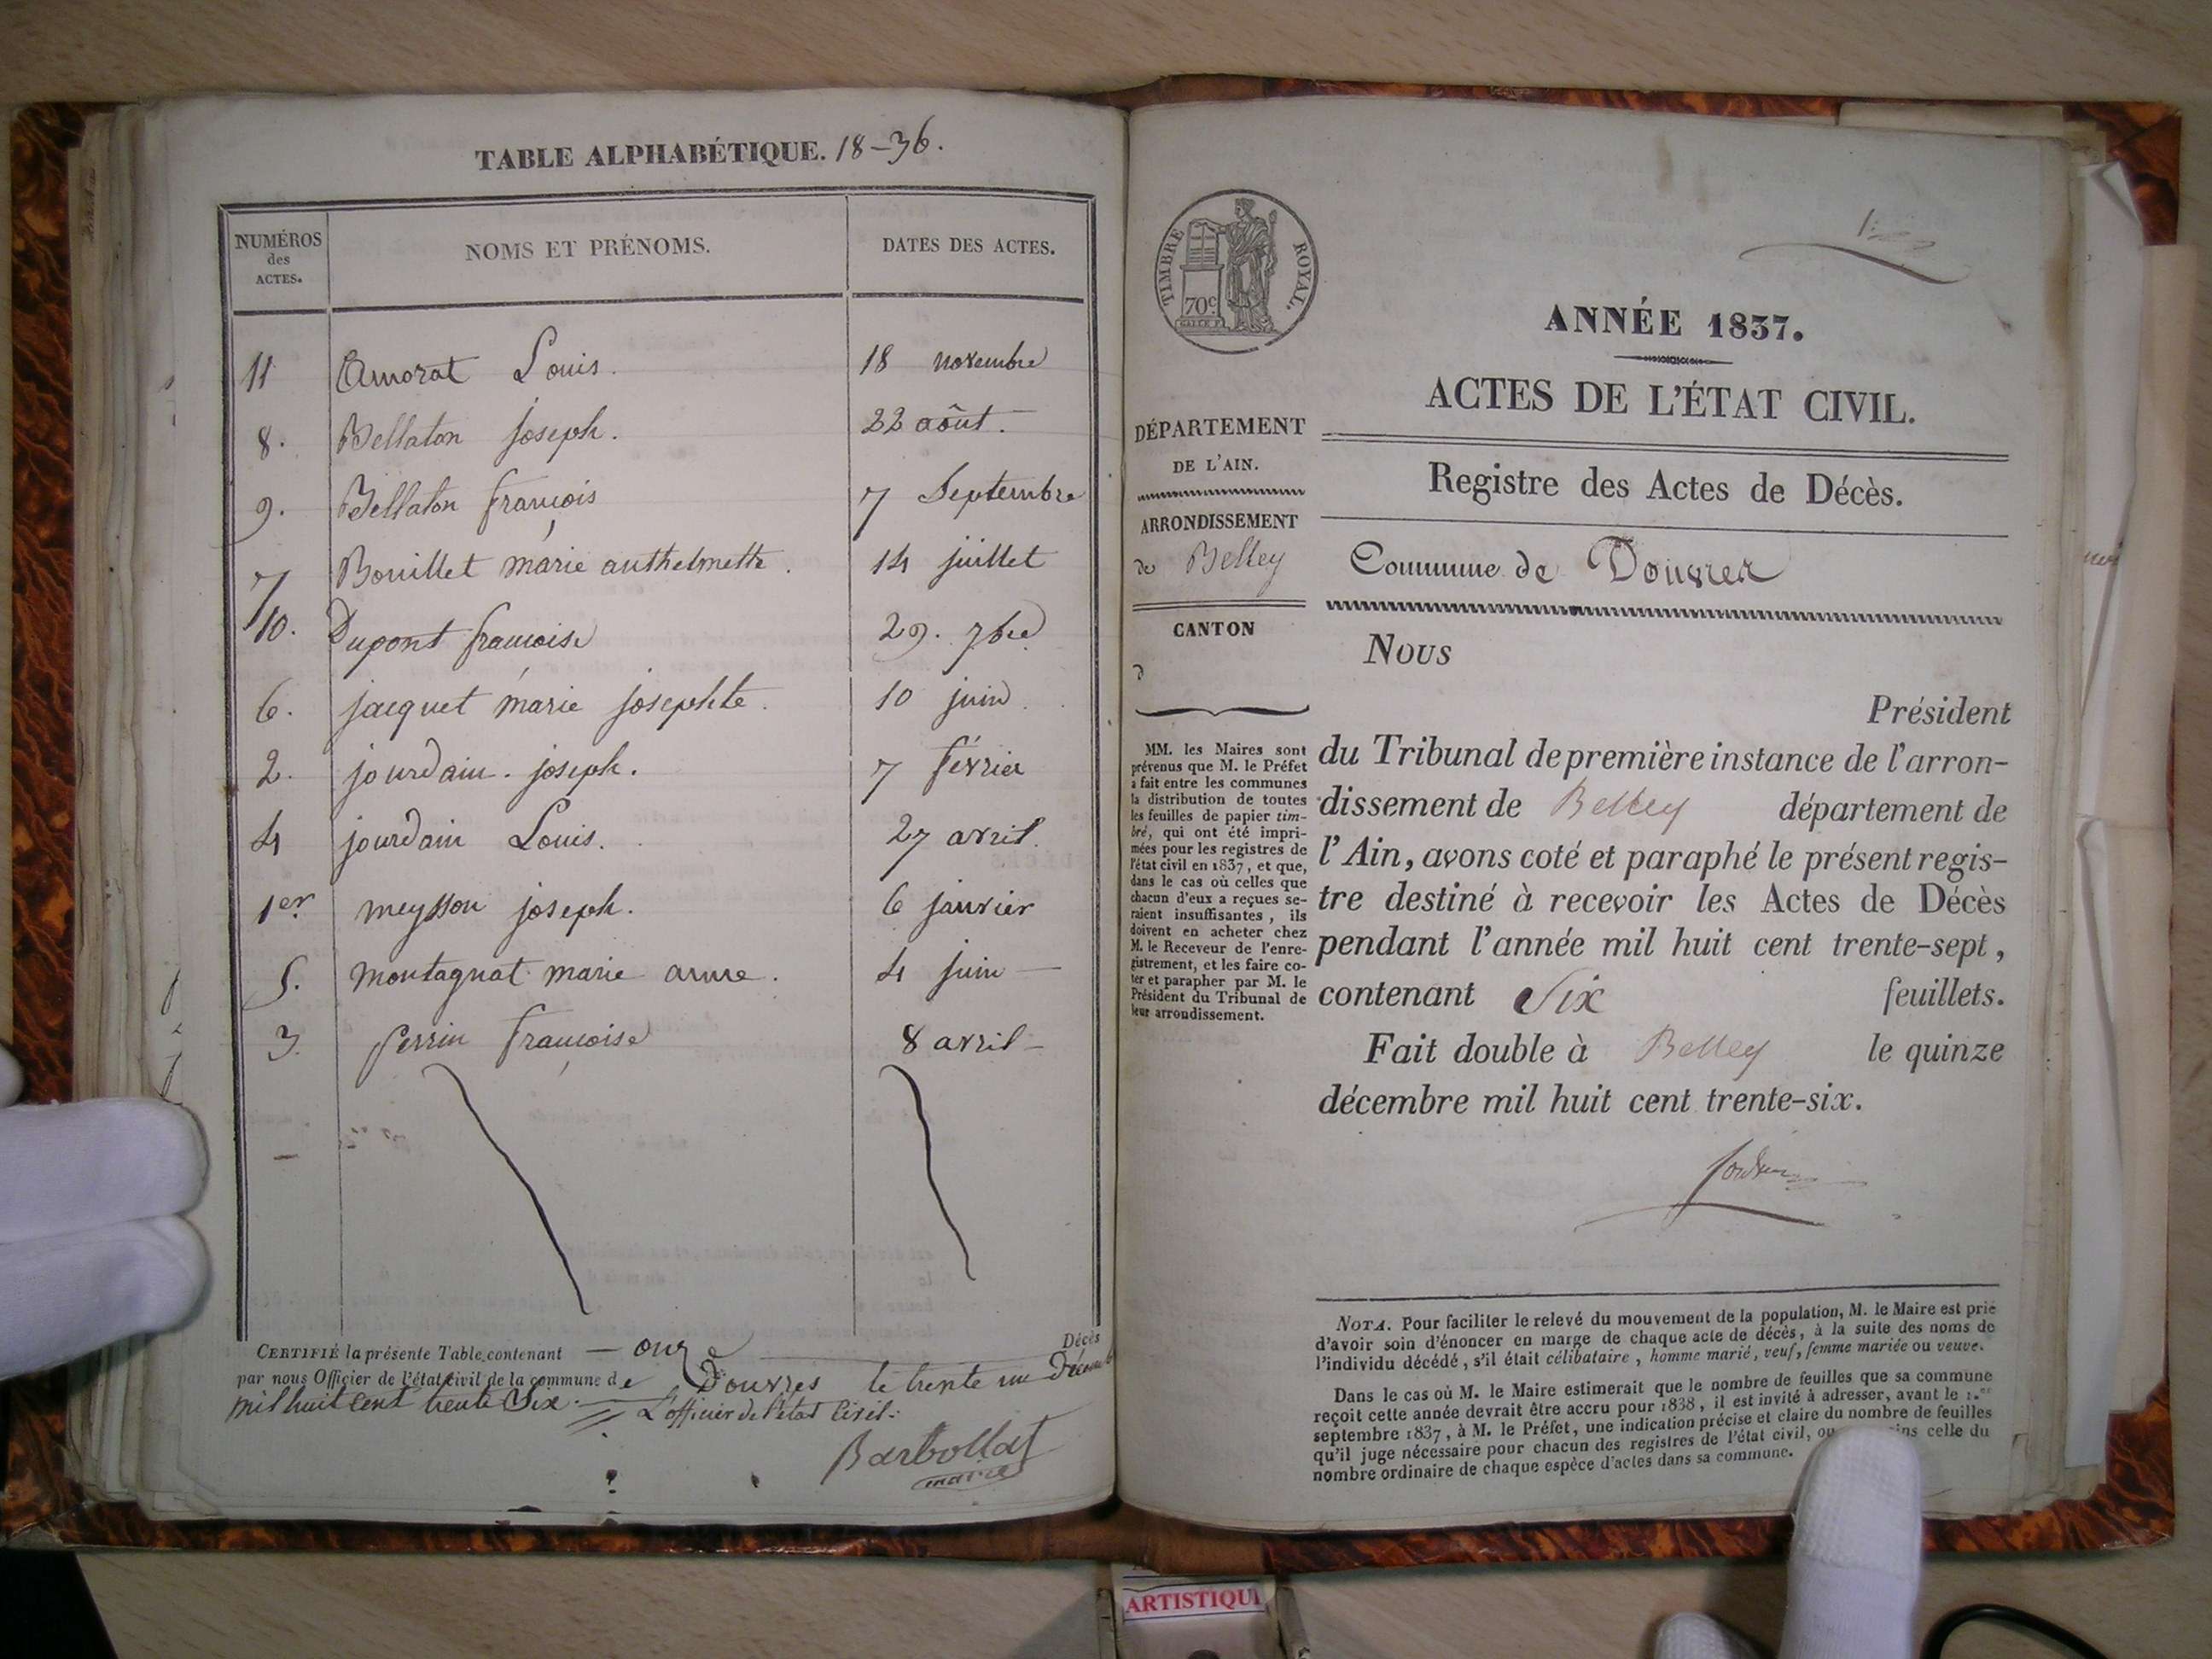 TABLE ALPHABÉTIQUE. 18-36.
NUMÉROS des ACTES. NOMS ET PRÉNOMS. DATES DES ACTES.
11 Amorat Louis. 18 novembre
8. Bellaton joseph. 22 août.
9. Bellaton françois 7 Septembre
7 Bouillet marie anthelmette. 14 juillet
10. Dupont francoise 29. 7bre
6. jacquet marie josephte. 10 juin.
2. jourdain. joseph. 7 février
4 jourdain Louis. 27 avril.
1er meysson joseph. 6 janvier
5. montagnat marie anne. 4 juin —
3. Perrin françoise 8 avril —
CERTIFIÉ la présente Table, contenant — onze Décès
par nous Officier de l'état civil de la commune de Douvres le trente un Décemb
mil huit Cent trente Six.
L'officier de l'état Civil.
Barbollat
maire
TIMBRE ROYAL.
70c
ANNÉE 1837.
ACTES DE L'ÉTAT CIVIL.
DÉPARTEMENT
DE L'AIN.
ARRONDISSEMENT
de Belley
CANTON
d
MM. les Maires sont
prévenus que M. le Préfet
a fait entre les communes
la distribution de toutes
les feuilles de papier tim-
bré, qui ont été impri-
mées pour les registres de
l'état civil en 1837, et que,
dans le cas où celles que
chacun d'eux a reçues se-
raient insuffisantes, ils
doivent en acheter chez
M. le Receveur de l'enre-
gistrement, et les faire co-
ter et parapher par M. le
Président du Tribunal de
leur arrondissement.
Registre des Actes de Décès.
Commune de Douvres
Nous
Président
du Tribunal de première instance de l'arron-
dissement de Belley département de
l'Ain, avons coté et paraphé le présent regis-
tre destiné à recevoir les Actes de Décès
pendant l'année mil huit cent trente-sept,
contenant Six feuillets.
Fait double à Belley le quinze
décembre mil huit cent trente-six.
NOTA. Pour faciliter le relevé du mouvement de la population, M. le Maire est prié
d'avoir soin d'énoncer en marge de chaque acte de décès, à la suite des noms de
l'individu décédé, s'il était célibataire, homme marié, veuf, femme mariée ou veuve.
Dans le cas où M. le Maire estimerait que le nombre de feuilles que sa commune
reçoit cette année devrait être accru pour 1838, il est invité à adresser, avant le 1.er
septembre 1837, à M. le Préfet, une indication précise et claire du nombre de feuilles
qu'il juge nécessaire pour chacun des registres de l'état civil, ou celle du
nombre ordinaire de chaque espèce d'actes dans sa commune.
ARTISTIQU